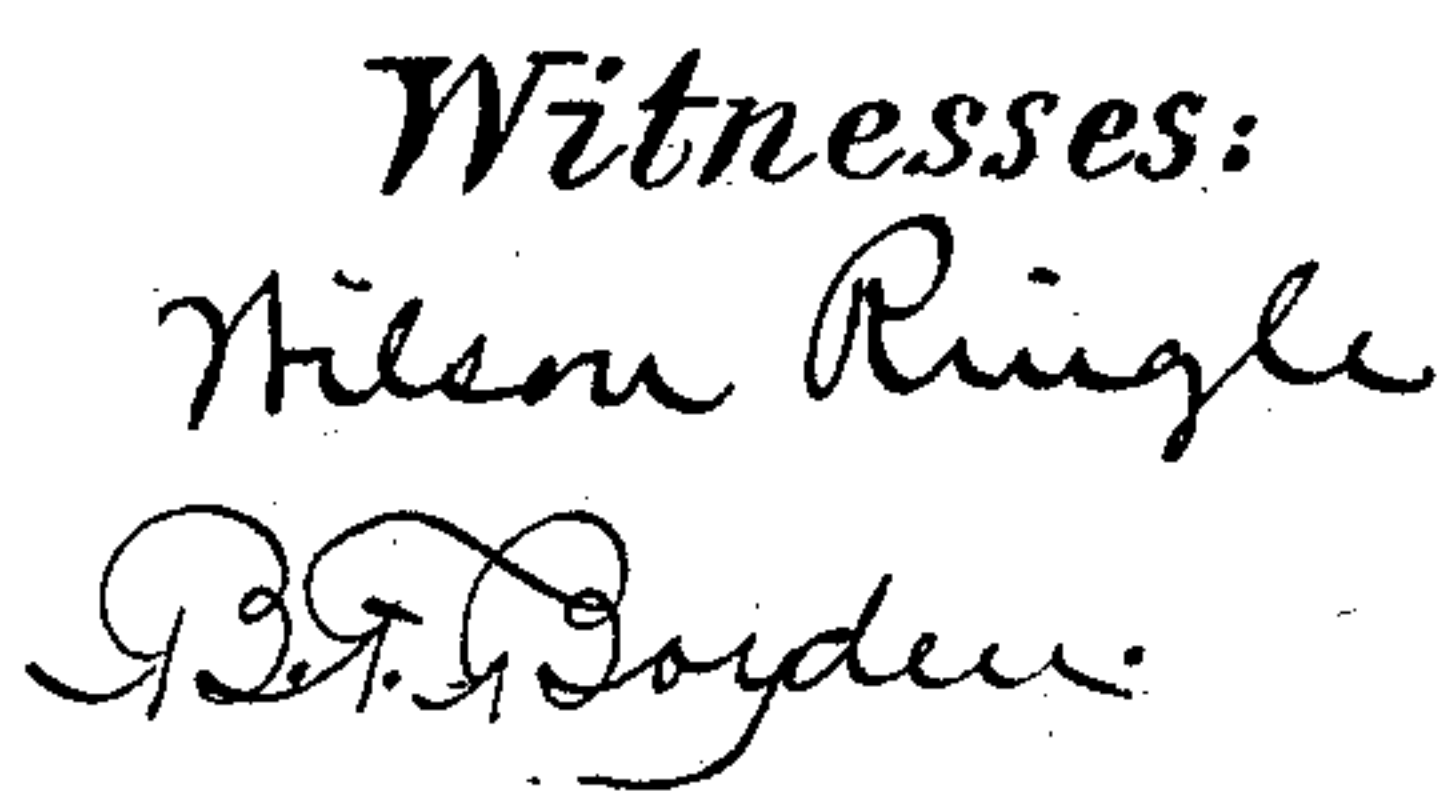 Witnesses:
Wilson Ringle
B. T. Boyden.